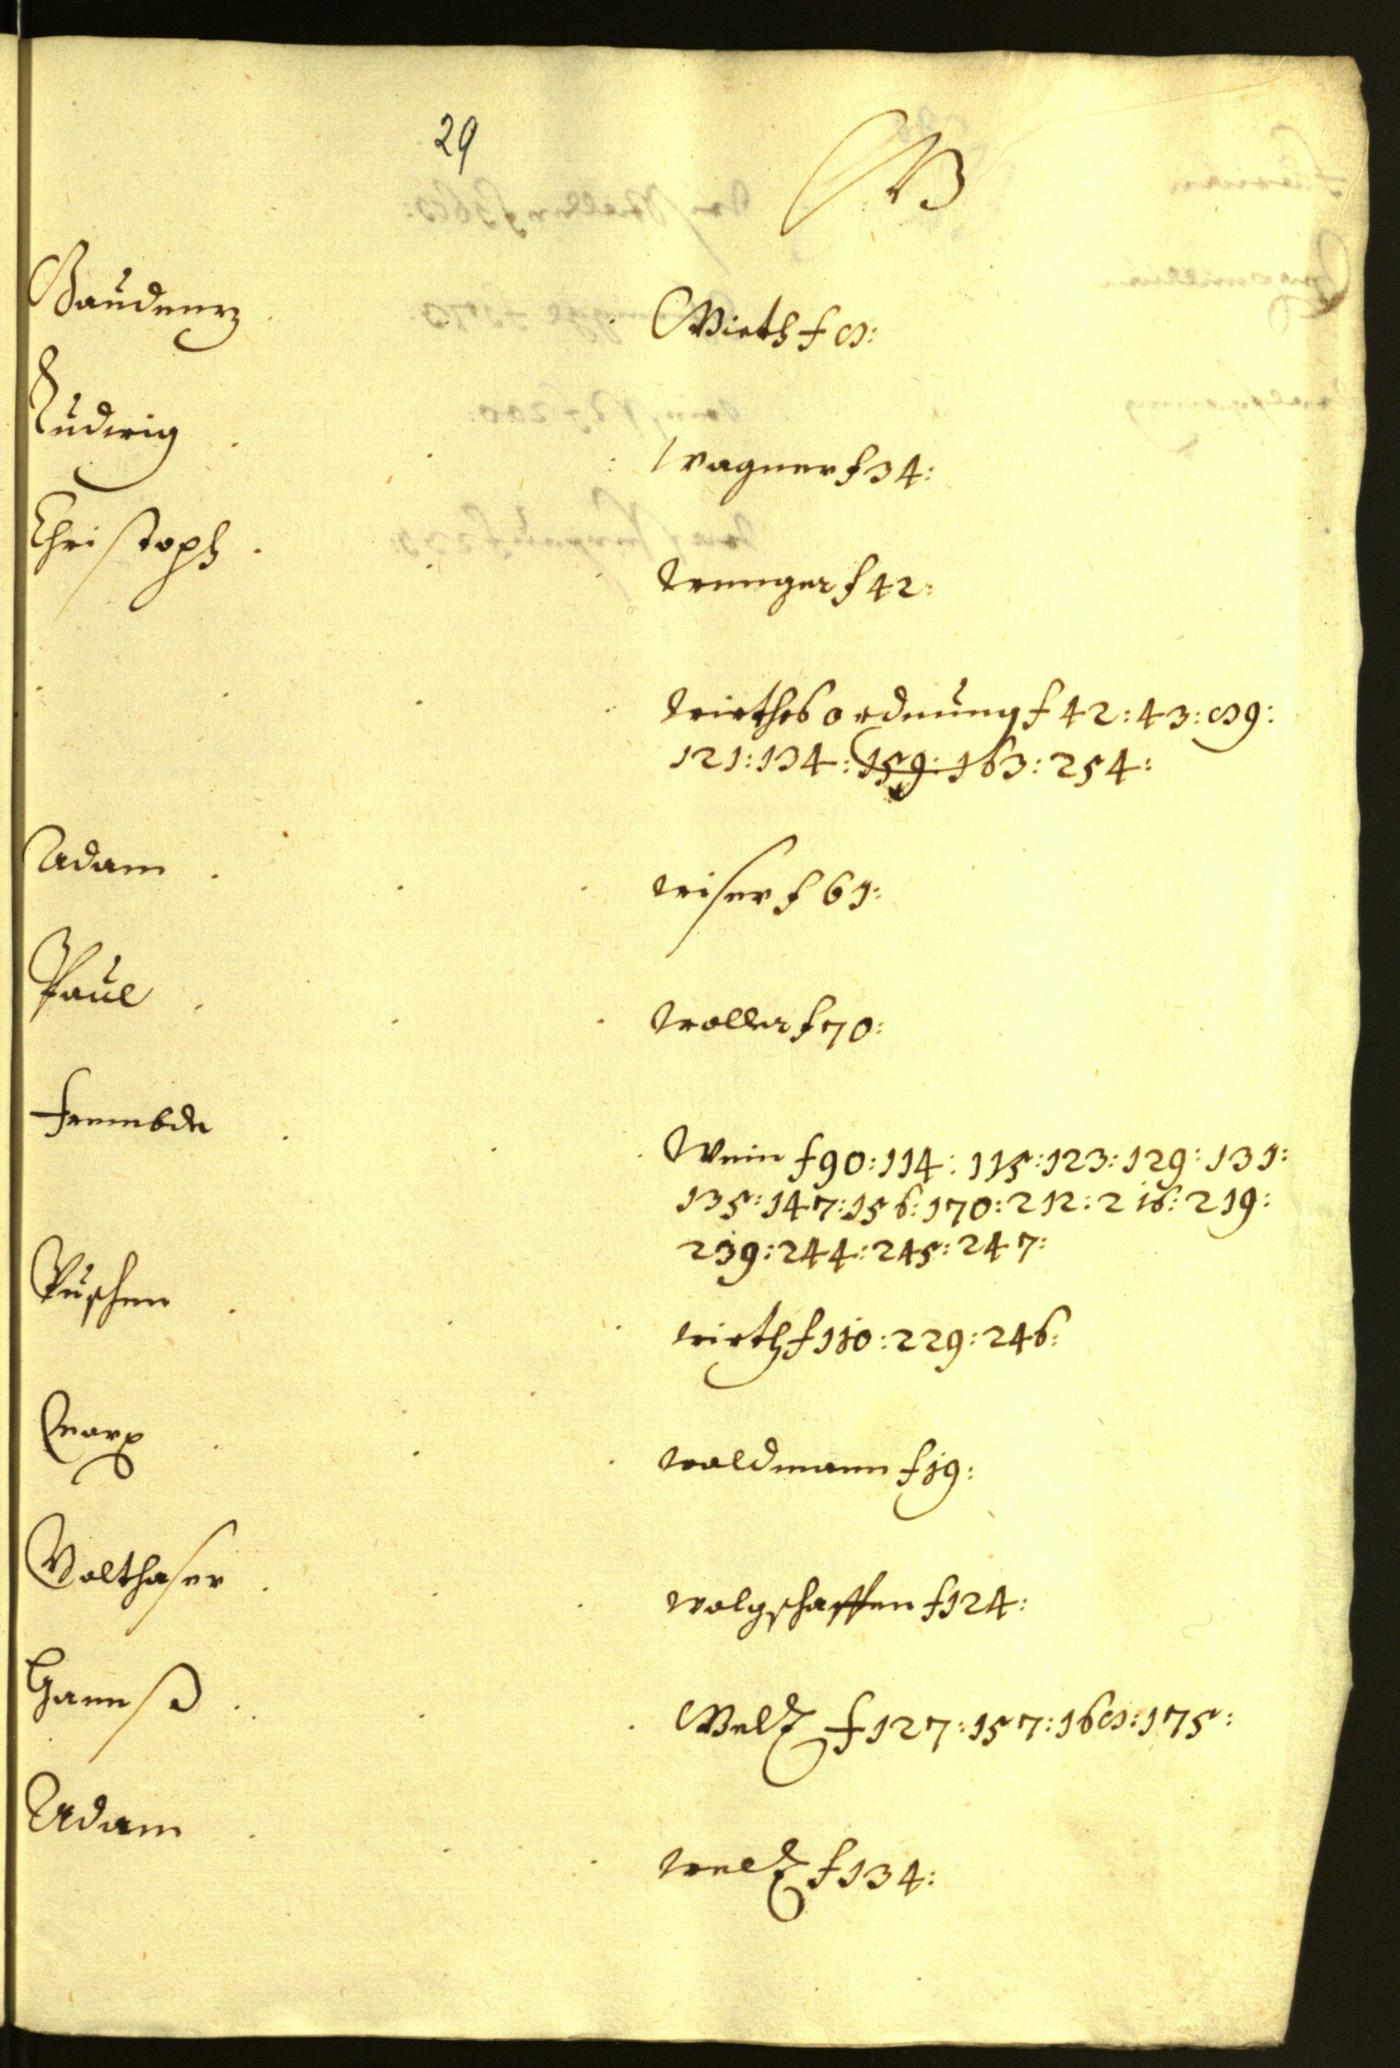 29
W
Gaudenz
Wirth f 8:
Ludwig
Wagner f 34:
Christoph
wenger f 42:
wirths ordnung f 42: 43: 89:
121: 134: 159: 163: 254:
Adam
wiser f 61:
Paul
woller f 70:
frembde
Wein f 90: 114: 115: 123: 129: 131:
135: 147: 156: 170: 212: 216: 219:
239: 244: 245: 247:
Puschen
wirth f 110: 229: 246:
Marx
waldmann f 19:
Walthaser
wolgschaffen f 124:
Hannß
Welz f 127: 157: 168: 175:
Adam
welz f 134: